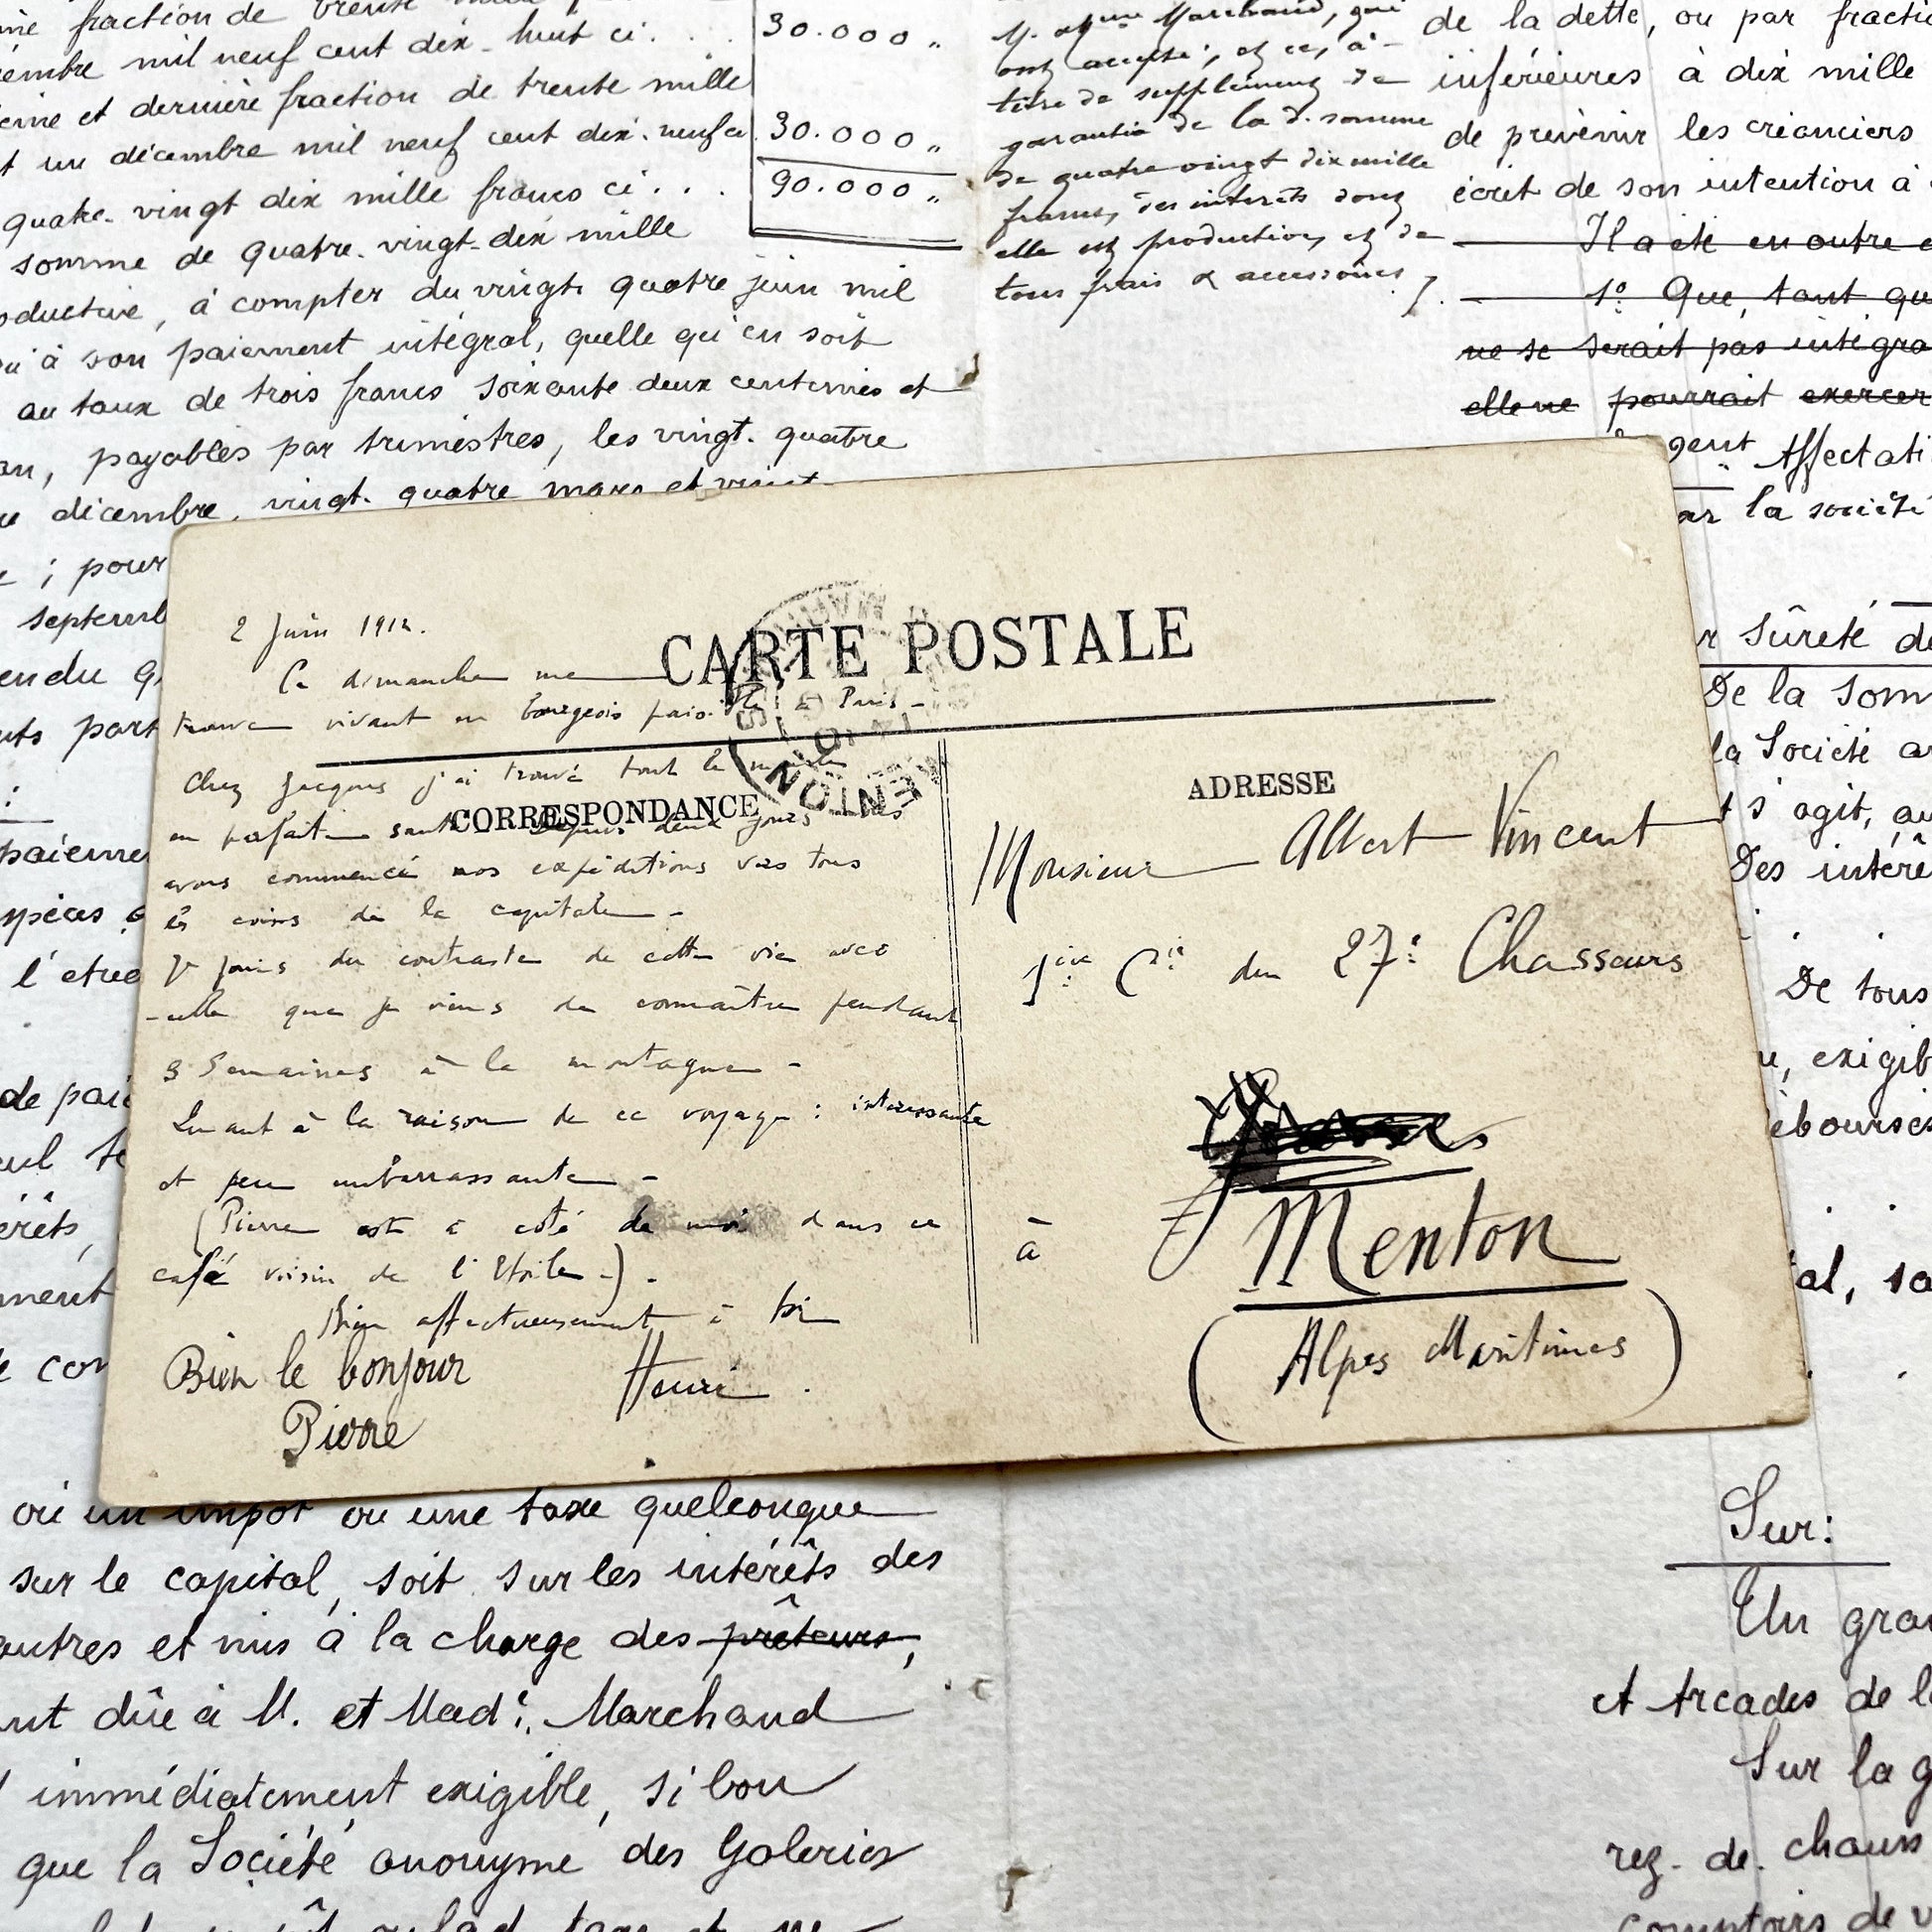 fraction de trente mille
décembre mil neuf cent dix-huit ci. . . 30.000 "
et dernière fraction de trente mille
un décembre mil neuf cent dix-neuf ci 30.000 "
quatre-vingt dix mille francs ci . . . 90.000 "
somme de quatre-vingt-dix mille
productive, à compter du vingt quatre juin mil
à son paiement intégral, quelle qu'en soit
au taux de trois francs soixante deux centimes et
an, payables par trimestres, les vingt-quatre
décembre, vingt-quatre mars et vingt
; pour
septemb
endu
part
:
paieme
pèces
l'étue
de pai
érêts,
ment
M. et Mme Marchand, qui
ont accepté, et ce, à
titre de supplément de
garantie de la d. somme
de quatre vingt dix mille
francs, des intérêts dont
elle est productive, et de
tous frais & accessoires
de la dette, ou par fractio
inférieures à dix mille
de prévenir les créanciers
écrit de son intention à
Il a été en outre
1° Que, tant qu
ne se serait pas intégra
elle ne pourrait exercer
Affectati
ar la société
r sûreté de
De la som
la Société a
t s'agit, au
Des intérê
De tous
u, exigib
ébourses
al, sa
CARTE POSTALE
2 Juin 1912.
Ce dimanche me
trouve vivant en bourgeois à Paris -
CORRESPONDANCE
Chez Jacques j'ai trouvé tout le monde
en parfaite santé. Depuis deux jours nous
avons commencé nos expéditions vers tous
les coins de la capitale -
Je jouis du contraste de cette vie avec
celle que je viens de connaître pendant
3 Semaines à la montagne -
Quant à la raison de ce voyage : intéressante
et peu embarrassante -
(Pierre est à côté de moi dans ce
café voisin de l'Etoile -) -
Bien affectueusement à toi
Henri .
Bien le bonjour
Pierre
MENTON
ADRESSE
Monsieur Albert Vincent
1ère Cie du 27e Chasseurs
à Menton
(Alpes Maritimes)
ou un impôt ou une taxe quelconque
sur le capital, soit sur les intérêts des
autres et mis à la charge des prêteurs,
dûe à M. et Made. Marchand
immédiatement exigible, si bon
que la Société anonyme des Galeries
Sur:
Un gra
et Arcades de l
Sur la g
rez-de-chauss
comptoirs de v